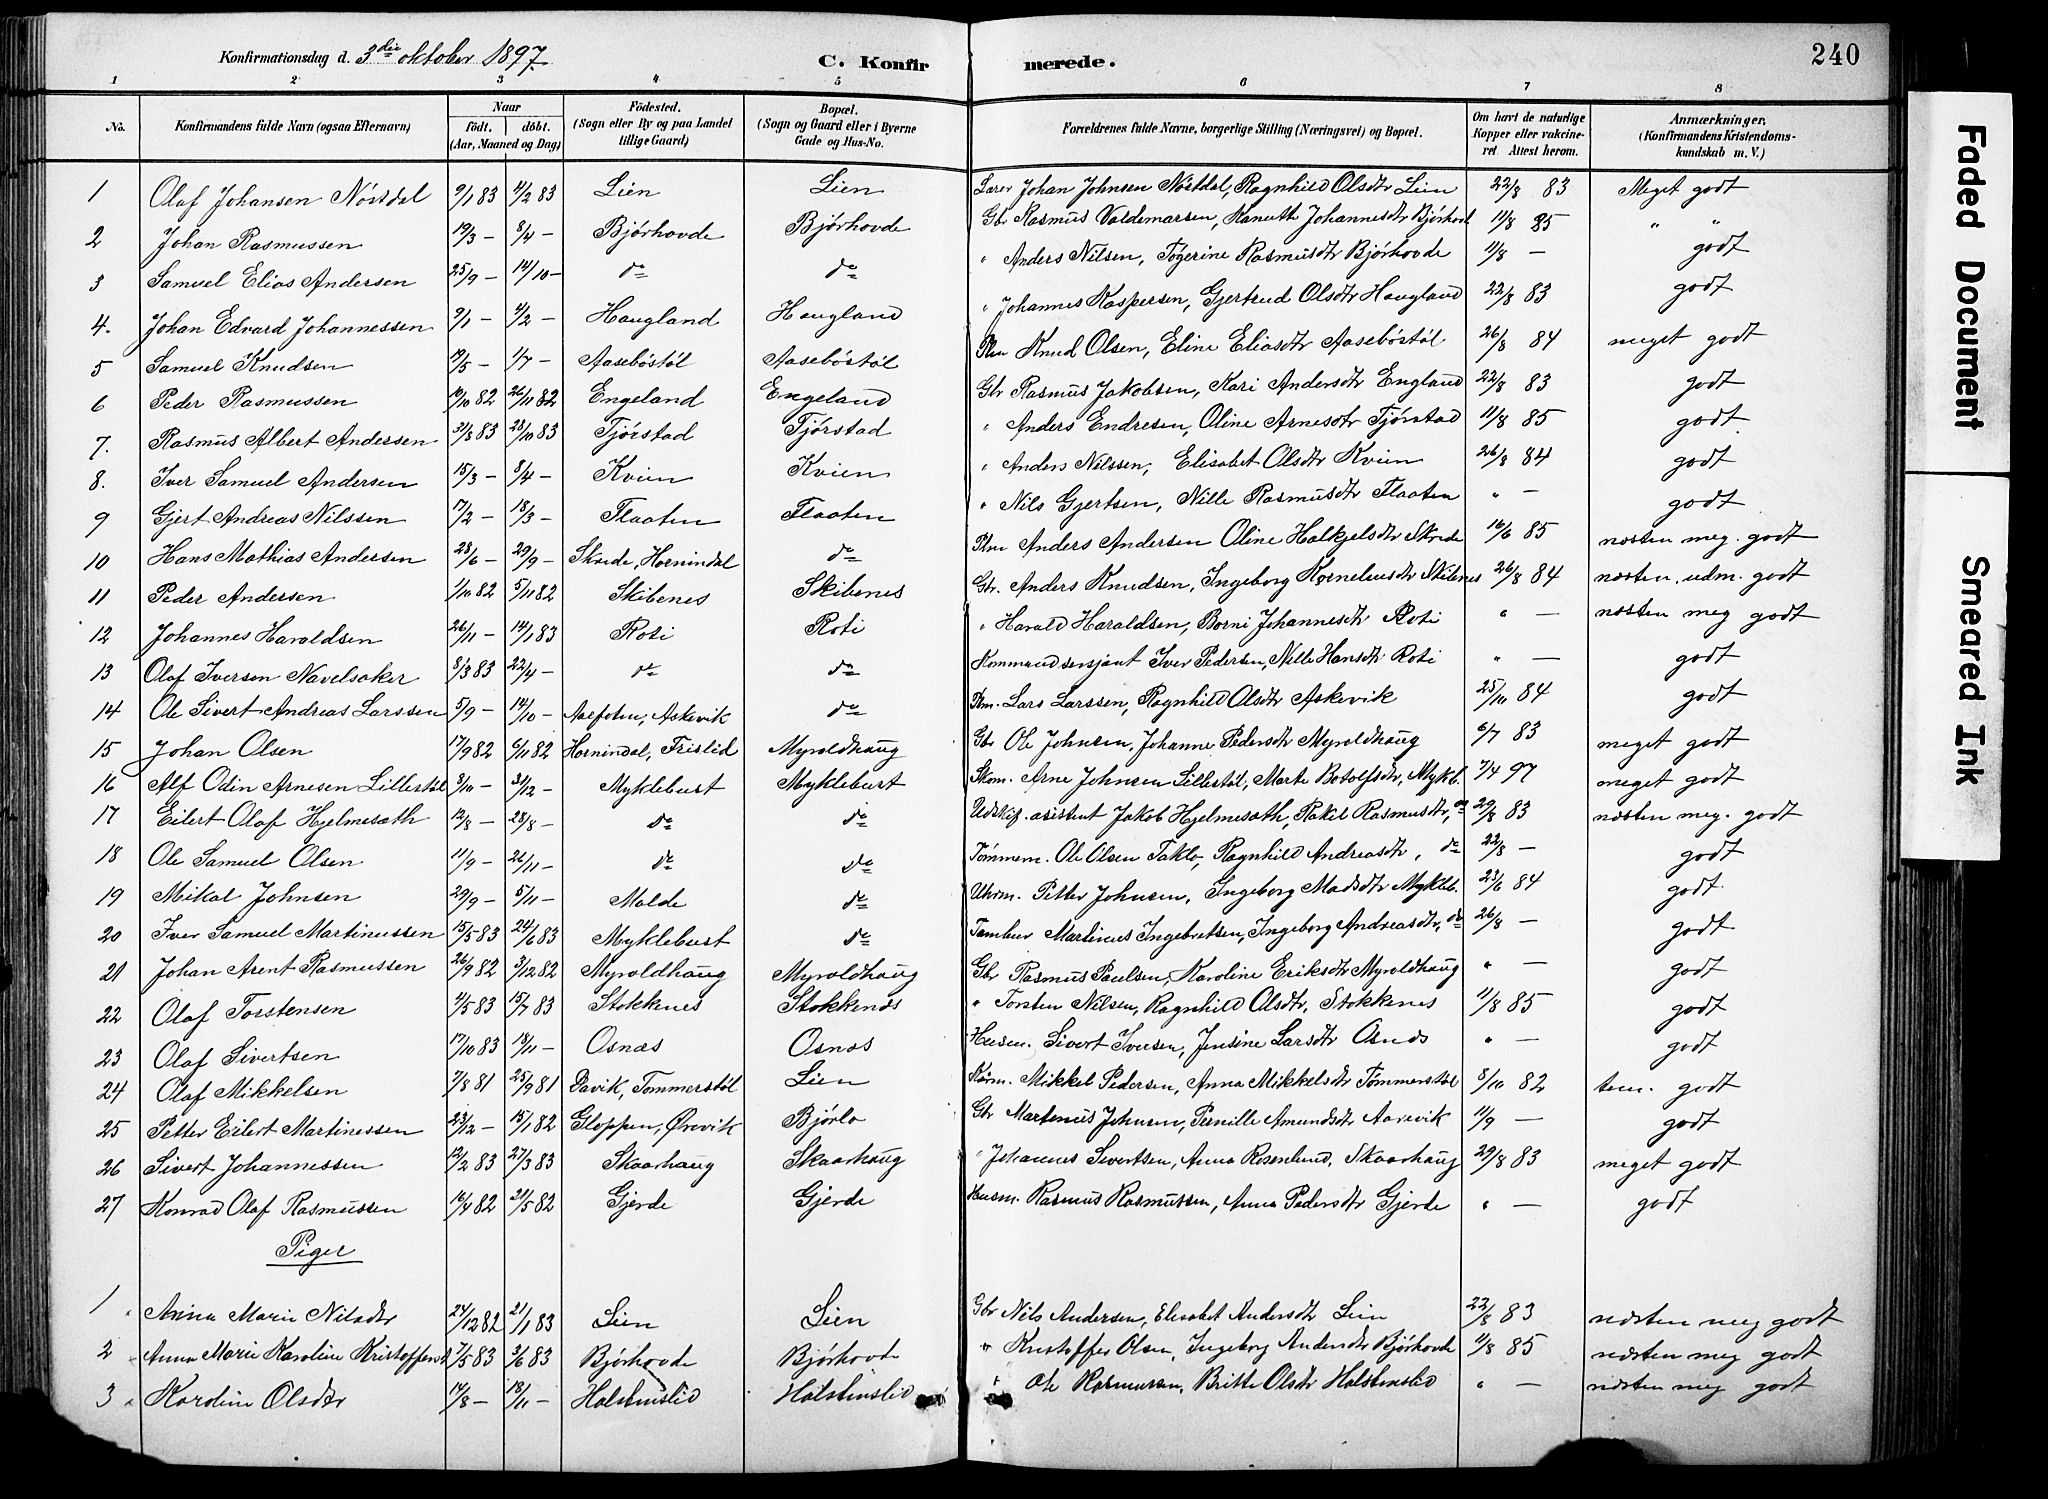 Konfirmationsdag d. 3die oktober 1897. C. Konfirmerede. 240
1 2 3 4 5 6 7 8
No. Konfirmandens fulde Navn (ogsaa Efternavn) Naar födt. döbt. (Aar, Maaned og Dag) Födested. (Sogn eller By og paa Landet tillige Gaard) Bopæl. (Sogn og Gaard eller i Byerne Gade og Hus-No. Forældrenes fulde Navne, borgerlige Stilling (Næringsvei) og Bopæl. Om havt de naturlige Kopper eller vakcineret. Attest herom. Anmærkninger, (Konfirmandens Kristendomskundskab m. V.)
1 Olaf Johansen Nöstdal 9/1 83 4/2 83 Lien Lien Lærer Johan Johnsen Nöstdal, Ragnhild Olsdtr Lien 22/8 83 Meget godt
2 Johan Rasmussen 19/3 — 8/4 — Bjørhovde Bjørhovde Gbr Rasmus Valdemarsen, Johannesdtr 11/8 85 " "
3 Samuel Elias Andersen 25/9 — 14/10 — do do " Anders Nilsen, Rasmusdtr Bjørhovde 11/8 — godt
4. Johan Edvard Johannessen 9/1 — 4/2 — Haugland Haugland " Johannes Kaspersen, Gjertrud Olsdtr Haugland 22/8 83 godt
5 Samuel Knudsen 19/5 — 1/7 — Aaseböstöl Aaseböstöl Plm Knud Olsen, Eline Eliasdtr Aaseböstöl 26/8 84 meget godt
6 Peder Rasmussen 10/10 82 26/11 82 Engeland Engeland Gbr Rasmus Jakobsen, Kari Andersdtr England 22/8 83 godt
7. Rasmus Albert Andersen 31/8 83 28/10 83 Tjørstad Tjørstad " Anders Endresen, Oline Arnesdtr Tjørstad 11/8 85 godt
8. Iver Samuel Andersen 15/3 — 8/4 — Kvien Kvien " Anders Nilssen, Elisabet Olsdtr Kvien 26/8 84 godt
9 Gjert Andreas Nilssen 17/2 — 18/3 — Flaaten Flaaten " Nils Gjertsen, Nille Rasmusdtr Flaaten " — godt
10 Hans Mathias Andersen 28/6 — 29/9 — Skrede, Hornindal do Plm Anders Andersen Oline Halkjelsdtr Skrede 16/6 85 næsten meg. godt
11 Peder Andersen 1/10 82 5/11 82 Skibenes Skibenes Gbr. Anders Knudsen, Ingeborg Korneliusdtr Skibenes 26/8 84 næsten. udm. godt
12 Johannes Haraldsen 26/11 — 14/1 83 Roti Roti " Harald Haraldsen, Borni Johannesdtr Roti " — næsten meg godt
13 Olaf Iversen Navelsaker 8/3 83 22/4 — do do Kommandersersjant Iver Pedersen, Nille Hansdtr Roti " — godt
14 Ole Sivert Andreas Larssen 5/9 — 14/10 — Aalfoten, Askevik do Plm. Lars Larssen, Ragnhild Olsdtr Askevik 25/10 84 godt
15 Johan Olsen 17/9 82 6/11 82 Hornindal, Frislid Myroldhaug Gbr Ole Johnsen, Johanne Pedersdtr Myroldhaug 6/7 83 meget godt
16 Alf Odin Arnesen Lillestöl 3/10 — 31/12 — Myklebust Myklebust Skom. Arne Johnsen Lillestöl, Marte Botolfsdtr, Mykb. 7/4 97 meget godt
17 Eilert Olaf Hjelmesæth 12/8 — 28/8 — do do Udskif. asistent Jakob Hjelmesæth, Rakel Rasmusdtr, do 29/8 83 næsten meg. godt
18 Ole Samuel Olsen 11/9 — 26/11 — do do Tømmerm. Ole Olsen Taklo, Ragnhild Andreasdtr, do 22/8 — godt
19 Mikal Johnsen 29/9 — 5/11 — Molde do Uhrm. Petter Johnsen, Ingeborg Madsdtr Mykleb. 23/6 84 godt.
20 Iver Samuel Martinussen 15/5 83 24/6 83 Myklebust do Tambur Martinus Ingebretsen, Ingeborg Andreasdtr, do 26/8 — godt
21 Johan Arent Rasmussen 26/9 82 3/12 82 Myroldhaug Myroldhaug Gbr Rasmus Paulsen, Karoline Eriksdtr Myroldhaug " — godt
22 Olaf Torstensen 4/5 83 15/7 83 Stokknes Stokkenæs " Torsten Nilsen, Ragnhild Olsdtr, Stokkenes 11/8 85 godt
23 Olaf Sivertsen 17/10 83 18/11 — Osnæs Osnæs Husm. Sivert Iversen, Jensine Larsdtr Osnæs " — godt
24 Olaf Mikkelsen 7/8 81 25/9 81 Davik, Tommerstöl Lien Mikkel Pedersen, Anna Mikkelsdtr Tømmerstøl 8/10 82 tem. godt
25 Petter Eilert Martinessen 23/12 — 15/1 82 Gloppen, Ørevik Bjørlo Gbr Martinus Johnsen, Pernille Amundsdtr Aarevik 11/9 — godt
26 Sivert Johannessen 12/2 83 27/3 83 Skaarhaug Skaarhaug " Johannes Sivertsen, Anna Rosenlund, Skaarhaug 29/8 83 meget godt
27 Konrad Olaf Rasmussen 16/4 82 21/5 82 Gjerde Gjerde Husm. Rasmus Rasmussen, Anna Pedersdtr Gjerde " — godt
Piger
1 Anna Marie Nilsdtr 24/12 82 21/1 83 Lien Lien Gbr Nils Andersen, Elisabet Andersdtr Lien 22/8 83 næsten meg godt
2 Anna Marie Karoline Kristoffersd 7/5 83 3/6 83 Bjørhovde Bjørhovde " Kristoffer Olsen, Ingeborg Andersdtr Bjørhovde 11/8 85 næsten meg godt
3 Karoline Olsdtr 14/8 — 18/11 — Holstenslid Holstenslid " Ole Rasmussen, Britte Olsdtr Holstenslid " — næsten meg godt
Faded Document
Smeared Ink